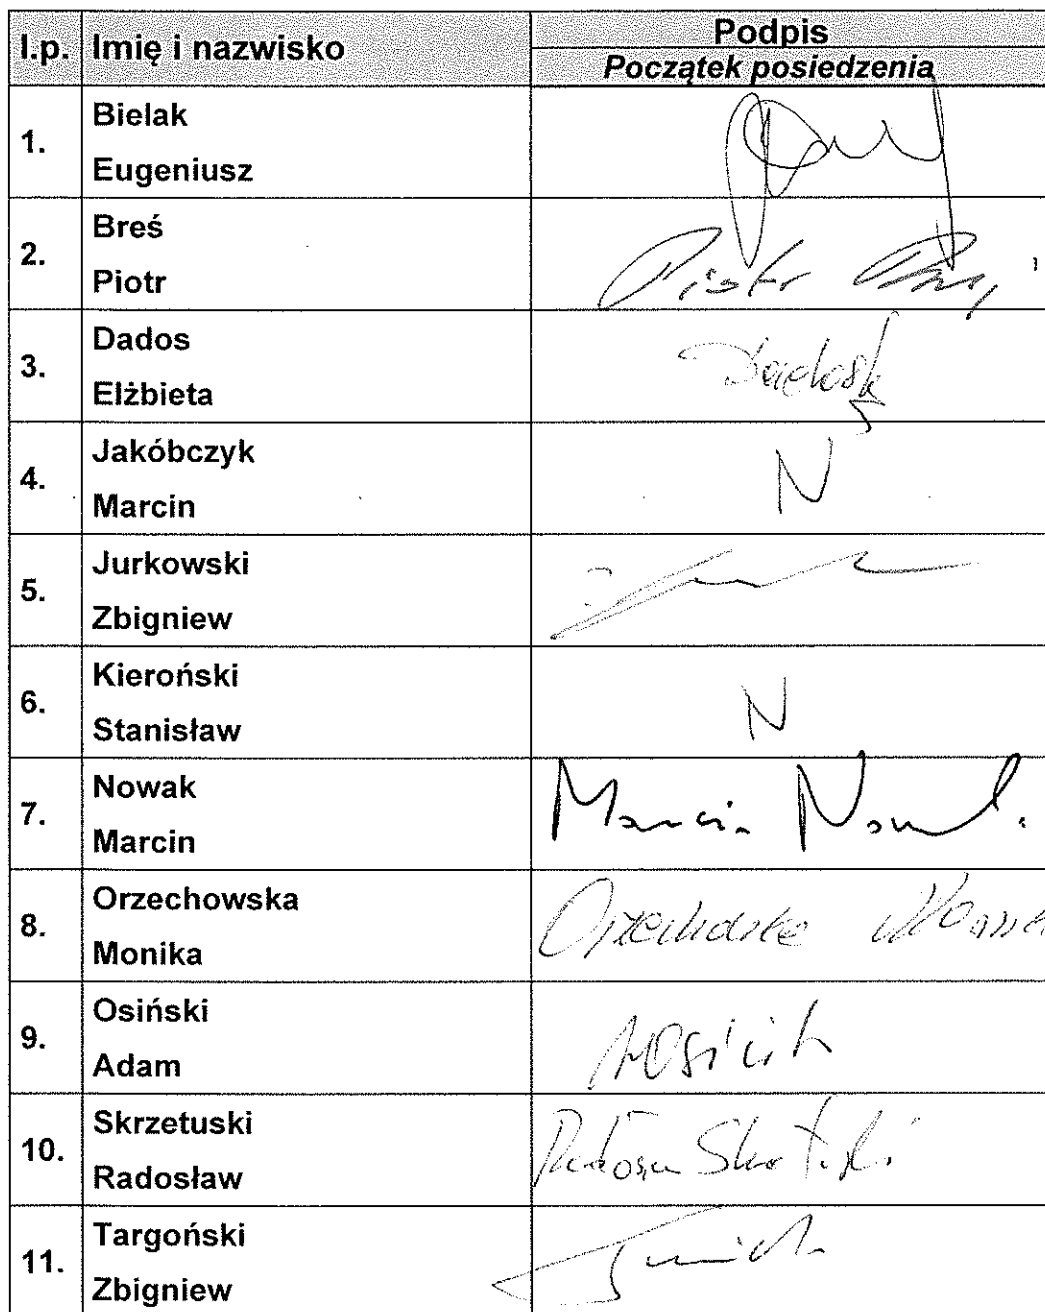 l.p. Imię i nazwisko Podpis
Początek posiedzenia
1. Bielak
Eugeniusz
2. Breś
Piotr
Piotr
3. Dados
Elżbieta
4. Jakóbczyk
Marcin
N
5. Jurkowski
Zbigniew
6. Kieroński
Stanisław
N
7. Nowak
Marcin
Marcin Nowak
8. Orzechowska
Monika
9. Osiński
Adam
10. Skrzetuski
Radosław
11. Targoński
Zbigniew